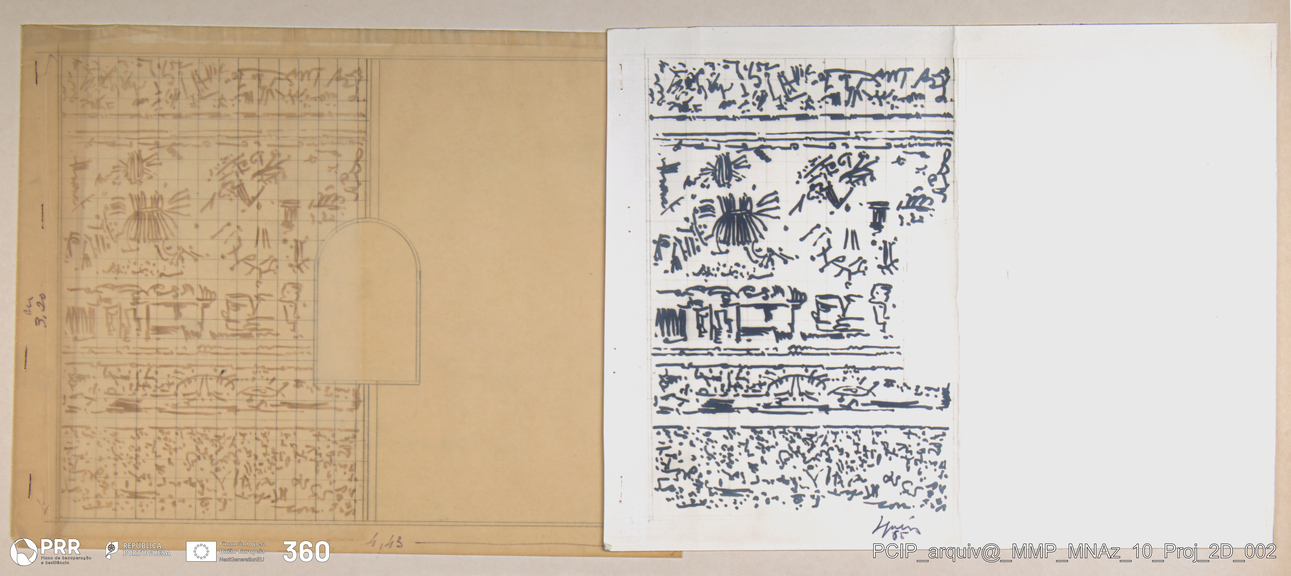 3,20
4,43
85
PRR
Plano de Recuperação
e Resiliência
REPÚBLICA
PORTUGUESA
Financiado pela
União Europeia
NextGenerationEU
360
PCIP_arquiv@_MMP_MNAz_10_Proj_2D_002